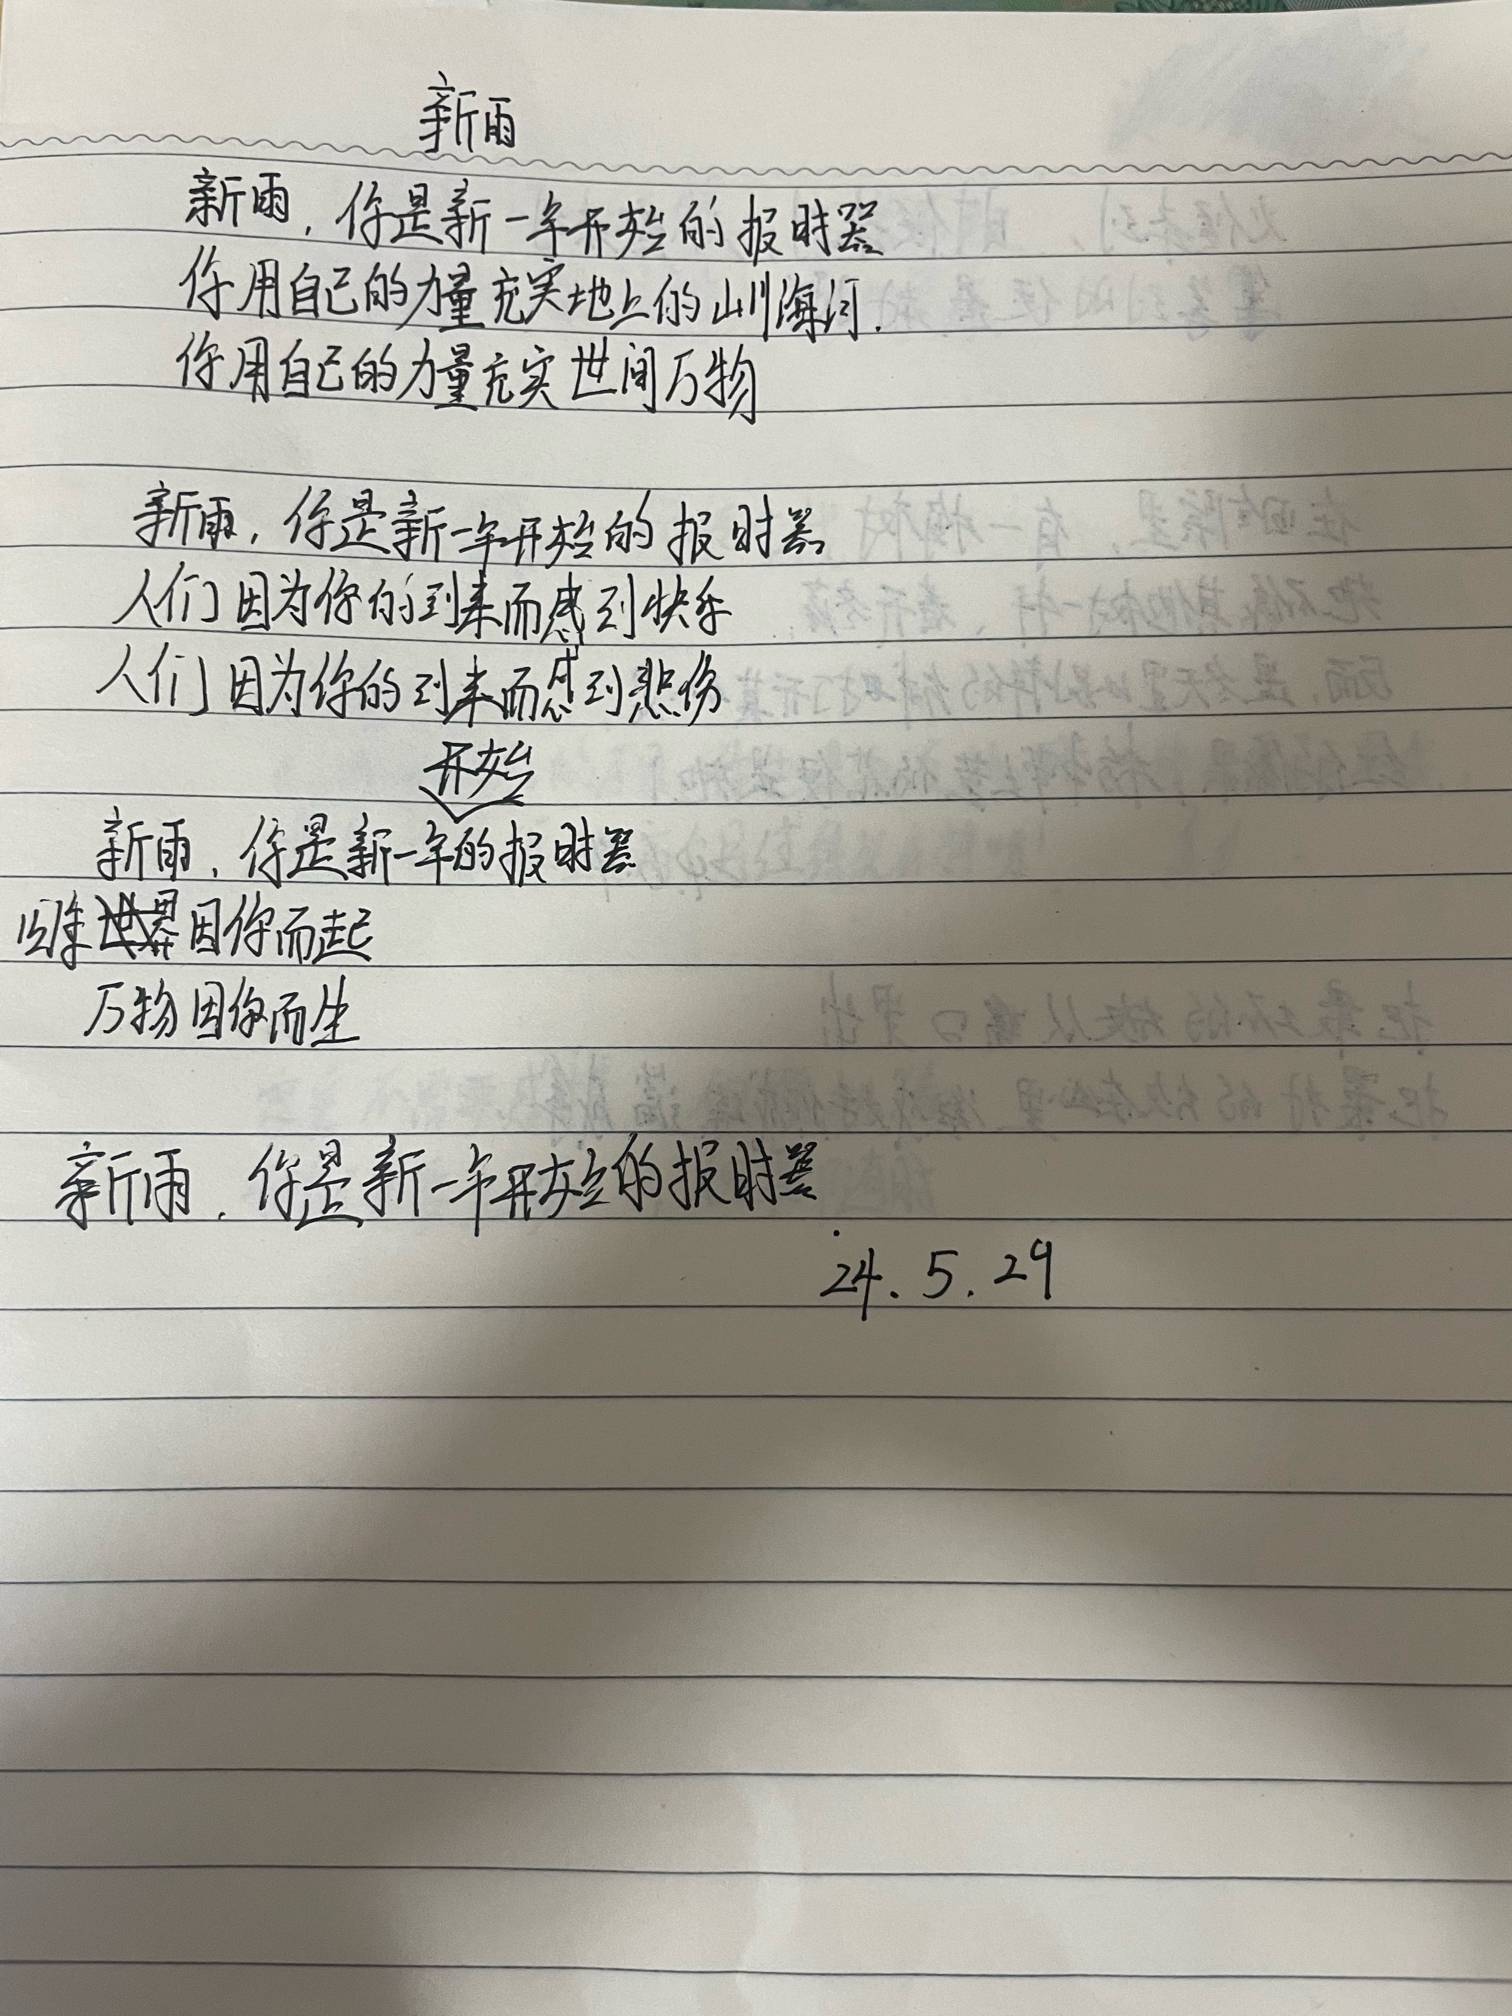 新雨
新雨，你是新一年开始的报时器
你用自己的力量充实地上的山川海河.
你用自己的力量充实世间万物
新雨，你是新一年开始的报时器
人们因为你的到来而感到快乐
人们因为你的到来而感到悲伤
开始
新雨，你是新一年的报时器
因你而起
万物因你而生
新雨，你是新一年开始的报时器
24.5.29